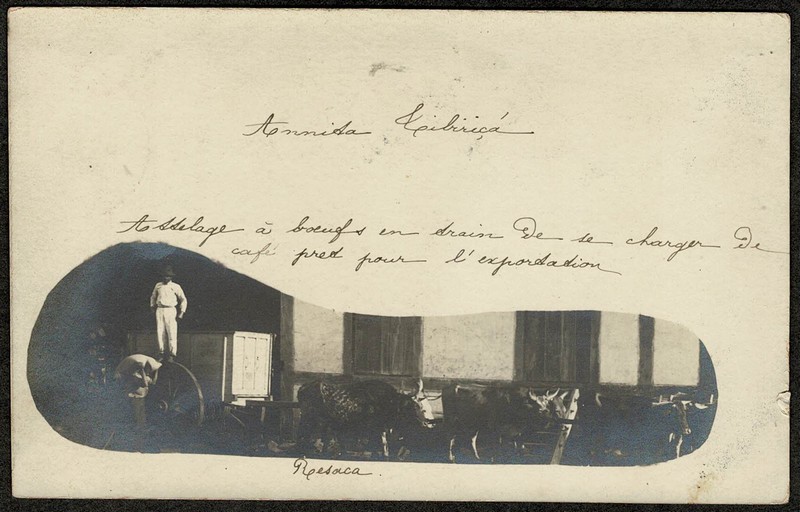 Annita Tibiriçá
Attelage à bœufs en train de se charger de
café pret pour l'exportation
Resaca.